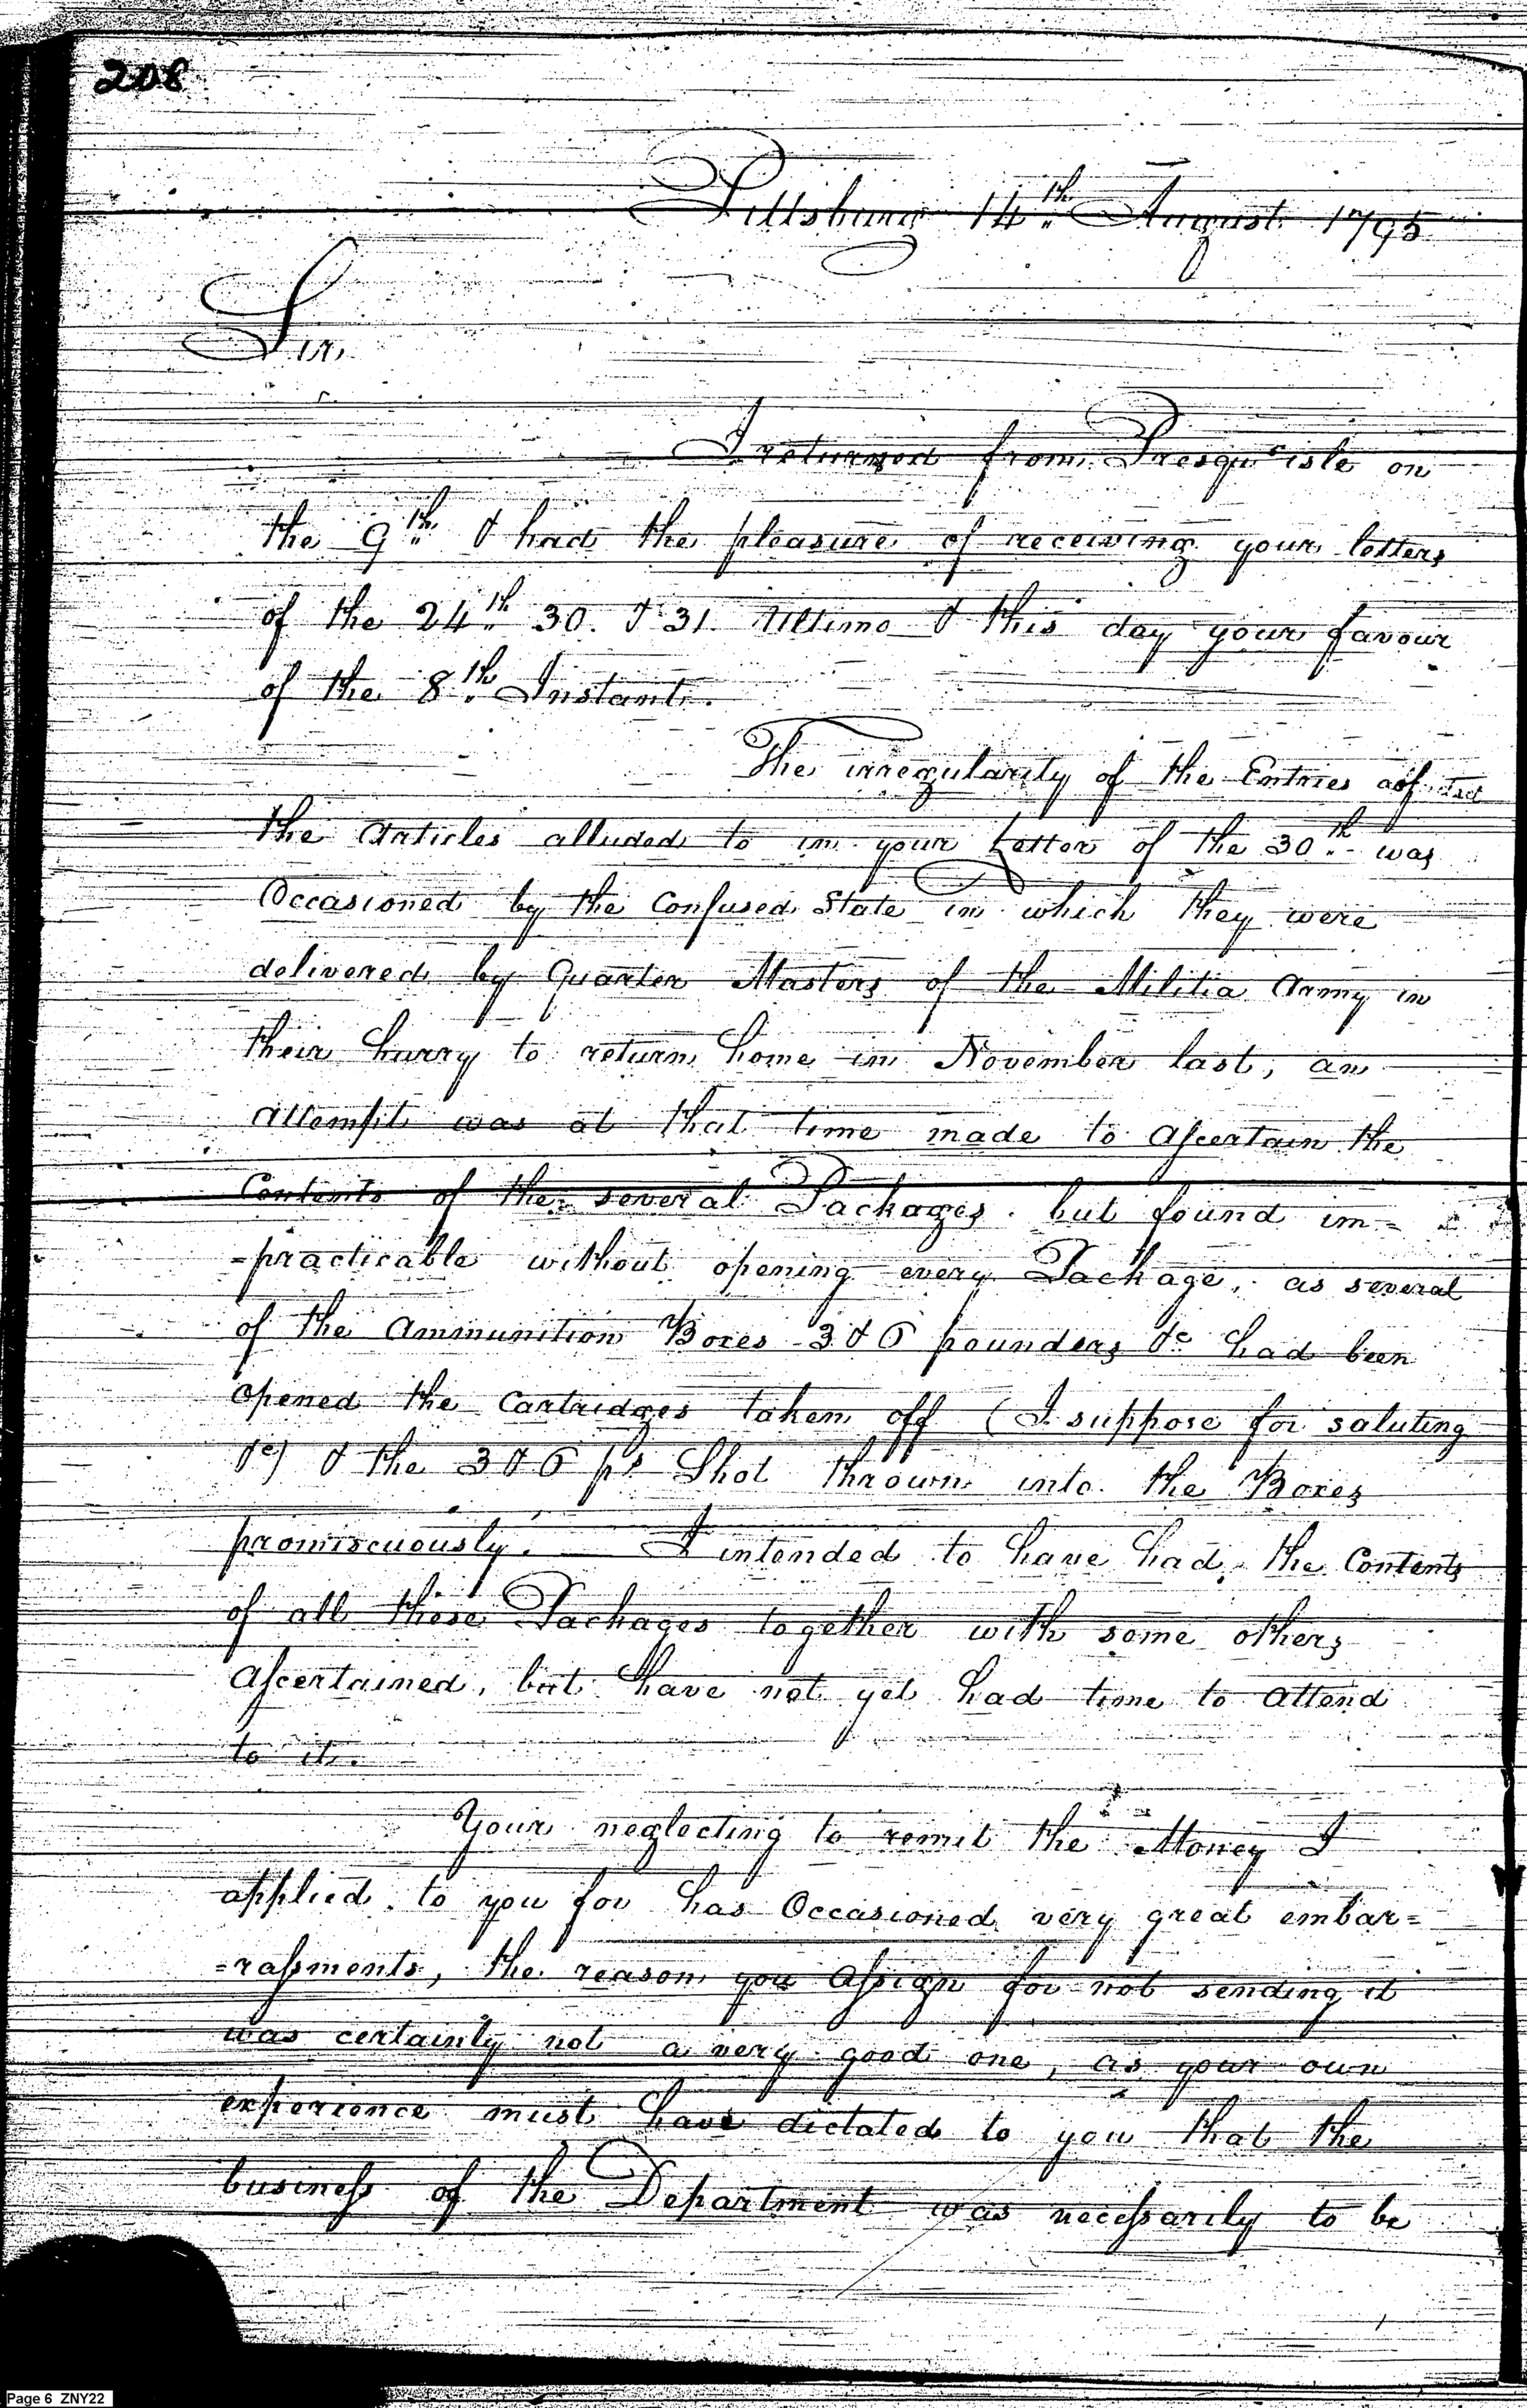 208
Pittsburg 14th August 1795
Sir,
I returned from Presqu'isle on
the 9th & had the pleasure of receiving your letters
of the 24th 30. & 31. Ultimo & this day your favour
of the 8th Instant.
The irregularity of the Entries of
the Articles alluded to in your Letter of the 30th was
Occasioned by the Confused State in which they were
delivered by Quarter Masters of the Militia Army in
their hurry to return home in November last, an
attempt was at that time made to Ascertain the
Contents of the several Packages. but found im=
=practicable without opening every Package, as several
of the Ammunition Boxes 3 & 6 pounders &c had been
opened the Cartridges taken off (I suppose for saluting
&c) & the 3 & 6 pr Shot thrown into the Boxes
promiscuously. I intended to have had the Contents
of all these Packages together with some others
Ascertained, but have not yet had time to attend
to it.
Your neglecting to remit the Money I
applied to you for has Occasioned very great embar=
=rassments, the reason you Assign for not sending it
was certainly not a very good one, as your own
experience must have dictated to you that the
business of the Department was necessarily to be
Page 6 ZNY22